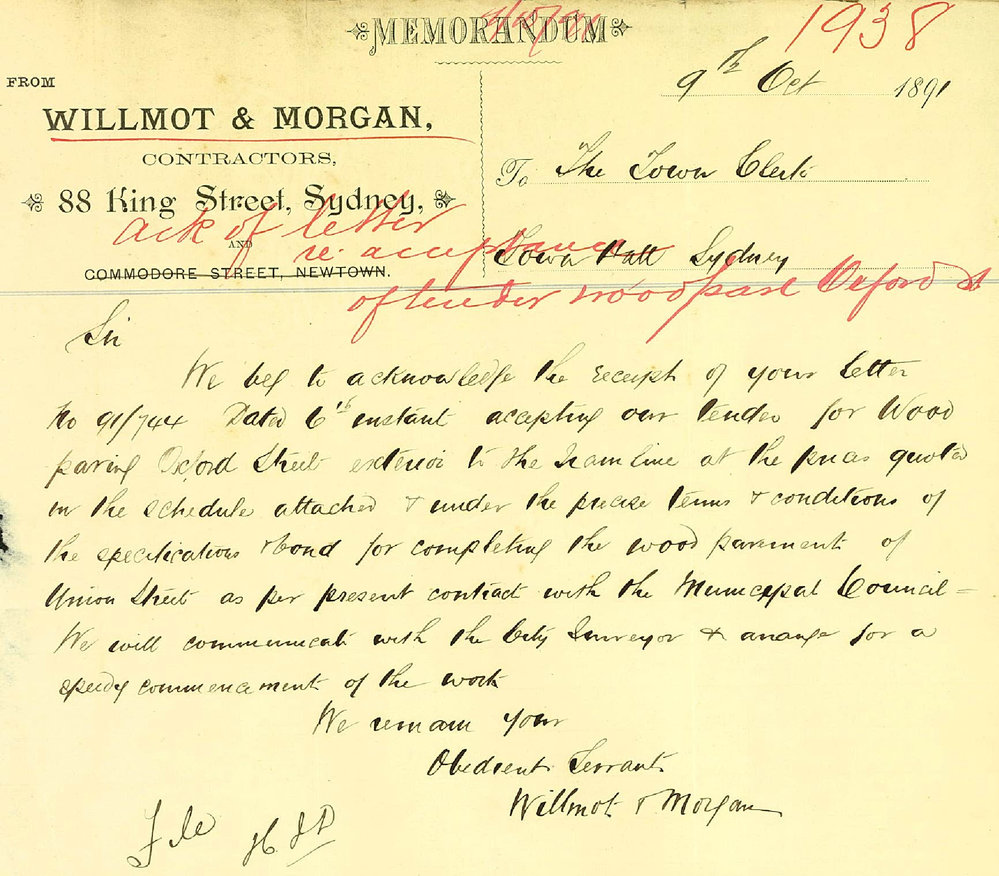 MEMORANDUM
1938
9th Oct 1891
FROM
WILLMOT & MORGAN,
CONTRACTORS,
88 King Street, Sydney,
AND
COMMODORE STREET, NEWTOWN.
To The Town Clerk
Town Hall Sydney
ack of letter
re. acceptance
of tender woodpave Oxford St
Sir
We beg to acknowledge the receipt of your letter
No 91/744 Dated 6th instant accepting our tender for Wood
paving Oxford Street exterior to the tramline at the prices quoted
in the schedule attached & under the precise terms & conditions of
the specifications & bond for completing the wood pavement of
Union Street as per present contract with the Municipal Council =
We will communicate with the City Surveyor & arrange for a
speedy commencement of the work
We remain your
Obedient Servants
Willmot & Morgan
File